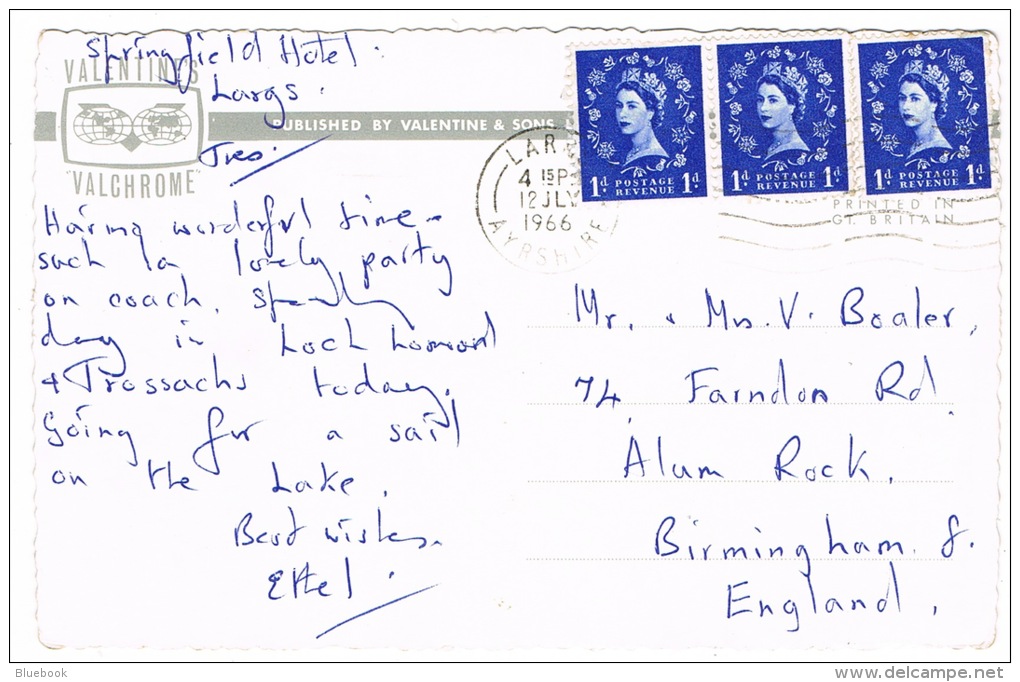 Springfield Hotel.
Largs.
Tues.
VALENTINE'S
"VALCHROME"
PUBLISHED BY VALENTINE & SONS
Having wonderful time -
such a lovely party
on coach. Spending
day in Loch Lomond
& Trossachs today.
Going for a sail
on the Lake.
Best wishes.
Ethel.
LAR
4 15 P
12 JLY
1966
AYRSHIRE
1d POSTAGE REVENUE 1d
1d POSTAGE REVENUE 1d
1d POSTAGE REVENUE 1d
PRINTED IN
GT. BRITAIN
Mr. & Mrs. V. Boaler,
74, Farndon Rd.
Alum Rock,
Birmingham. 8.
England,
Bluebook
www.delcampe.net